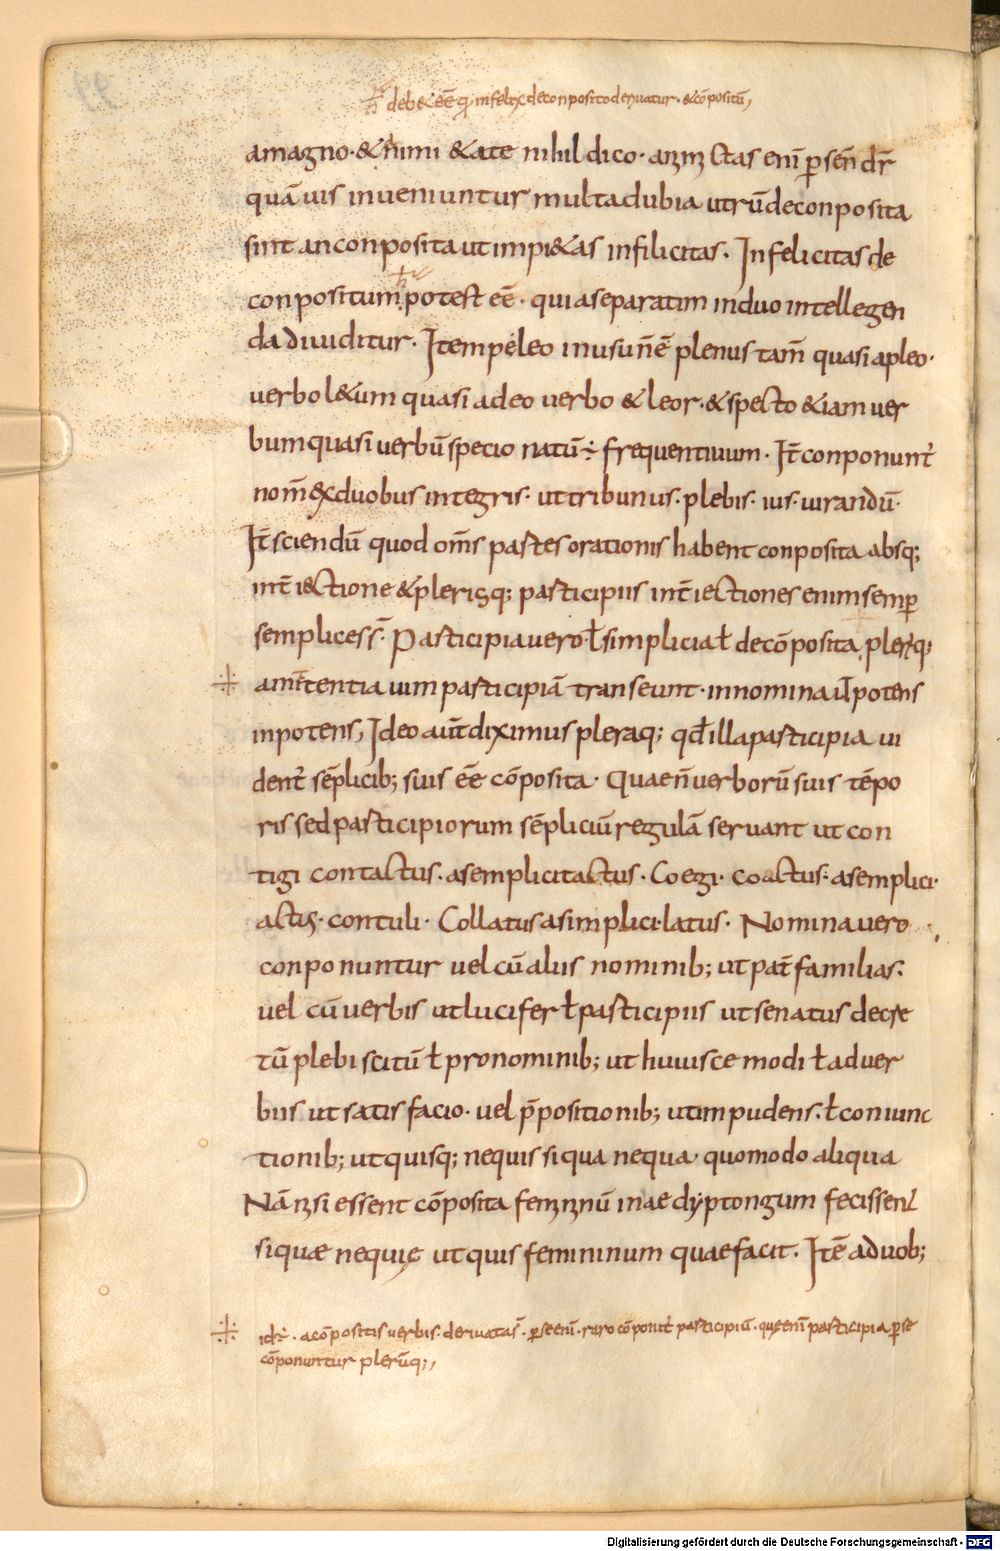 deb& eē q̄ infelix deconposito deriuatur · & cōpositū,
amagno · & nimi & ate nihil dico · enī p̱ sen̄ dr̄
quāuis inueniuntur multa dubia utrū deconposita
sint an conposita ut impi&as infilicitas · Infelicitas de
conpositum potest eē · quia separatim in duo intellegen
da diuiditur · Item peleo in usu ñ ē plenus tam̄ quasi a pleo ·
uerbo l&um quasi a deo uerbo & leor · & specto &iam uer
bum quasi uerbū specio natū ÷ frequentiuum · It̄ conponunt̄
nom̄ ex duobus integris · ut tribunus · plebis · ius · iurandū ·
It̄ sciendū quod om̄s partes orationis habent conposita absq;
int̄iectione & plerisq; participiis int̄iectiones enim semp̱
semplices s̄ · Participia uero ł simplicia ł decōposita plerāq;
amīttentia uim participiā transeunt · in nomina uł potens
inpotens, Ideo aūt diximus pleraq; qđ illa participia ui
dent̄ sēplicib; suis eē cōposita · Quae ñ uerborū suis tēpo
ris sed participiorum sēpliciū regulā seruant ut con
tigi contactus · a semplici tactus · Coegi · coactus · a semplici ·
actus · contuli · Collatus a simplici · latus · Nomina uero
conponuntur uel cū aliis nominib; ut pat̄ familias ·
uel cū uerbis ut lucifer ł participiis ut senatus decre
tū plebi scitū ł pronominib; ut huiusce modi ł aduer
biis ut satis facio · uel p̄positionib; ut impudens · ł coniunc
tionib; ut quisq; nequis siqua nequa · quomodo aliqua
Nā si essent cōposita femininū in ae dyptongum fecissent
siquae nequę ut quis femininum quae facit · Itē a duob;
id ÷ · a cōpositis uerbis · deriuata s̄ · p̱ se enī · raro cōponit̄ participiū · quę enī participia p̱ se
cōponuntur plerūq;,
Digitalisierung gefördert durch die Deutsche Forschungsgemeinschaft - DFG